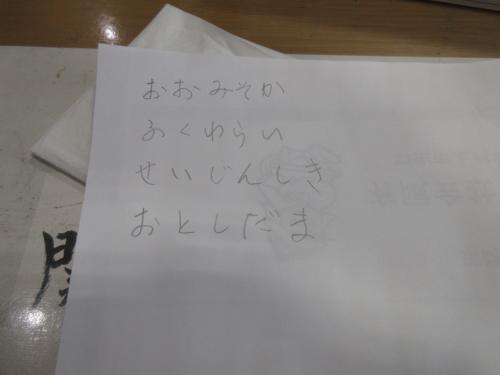 おおみそか
ふくわらい
せいじんしき
おとしだま